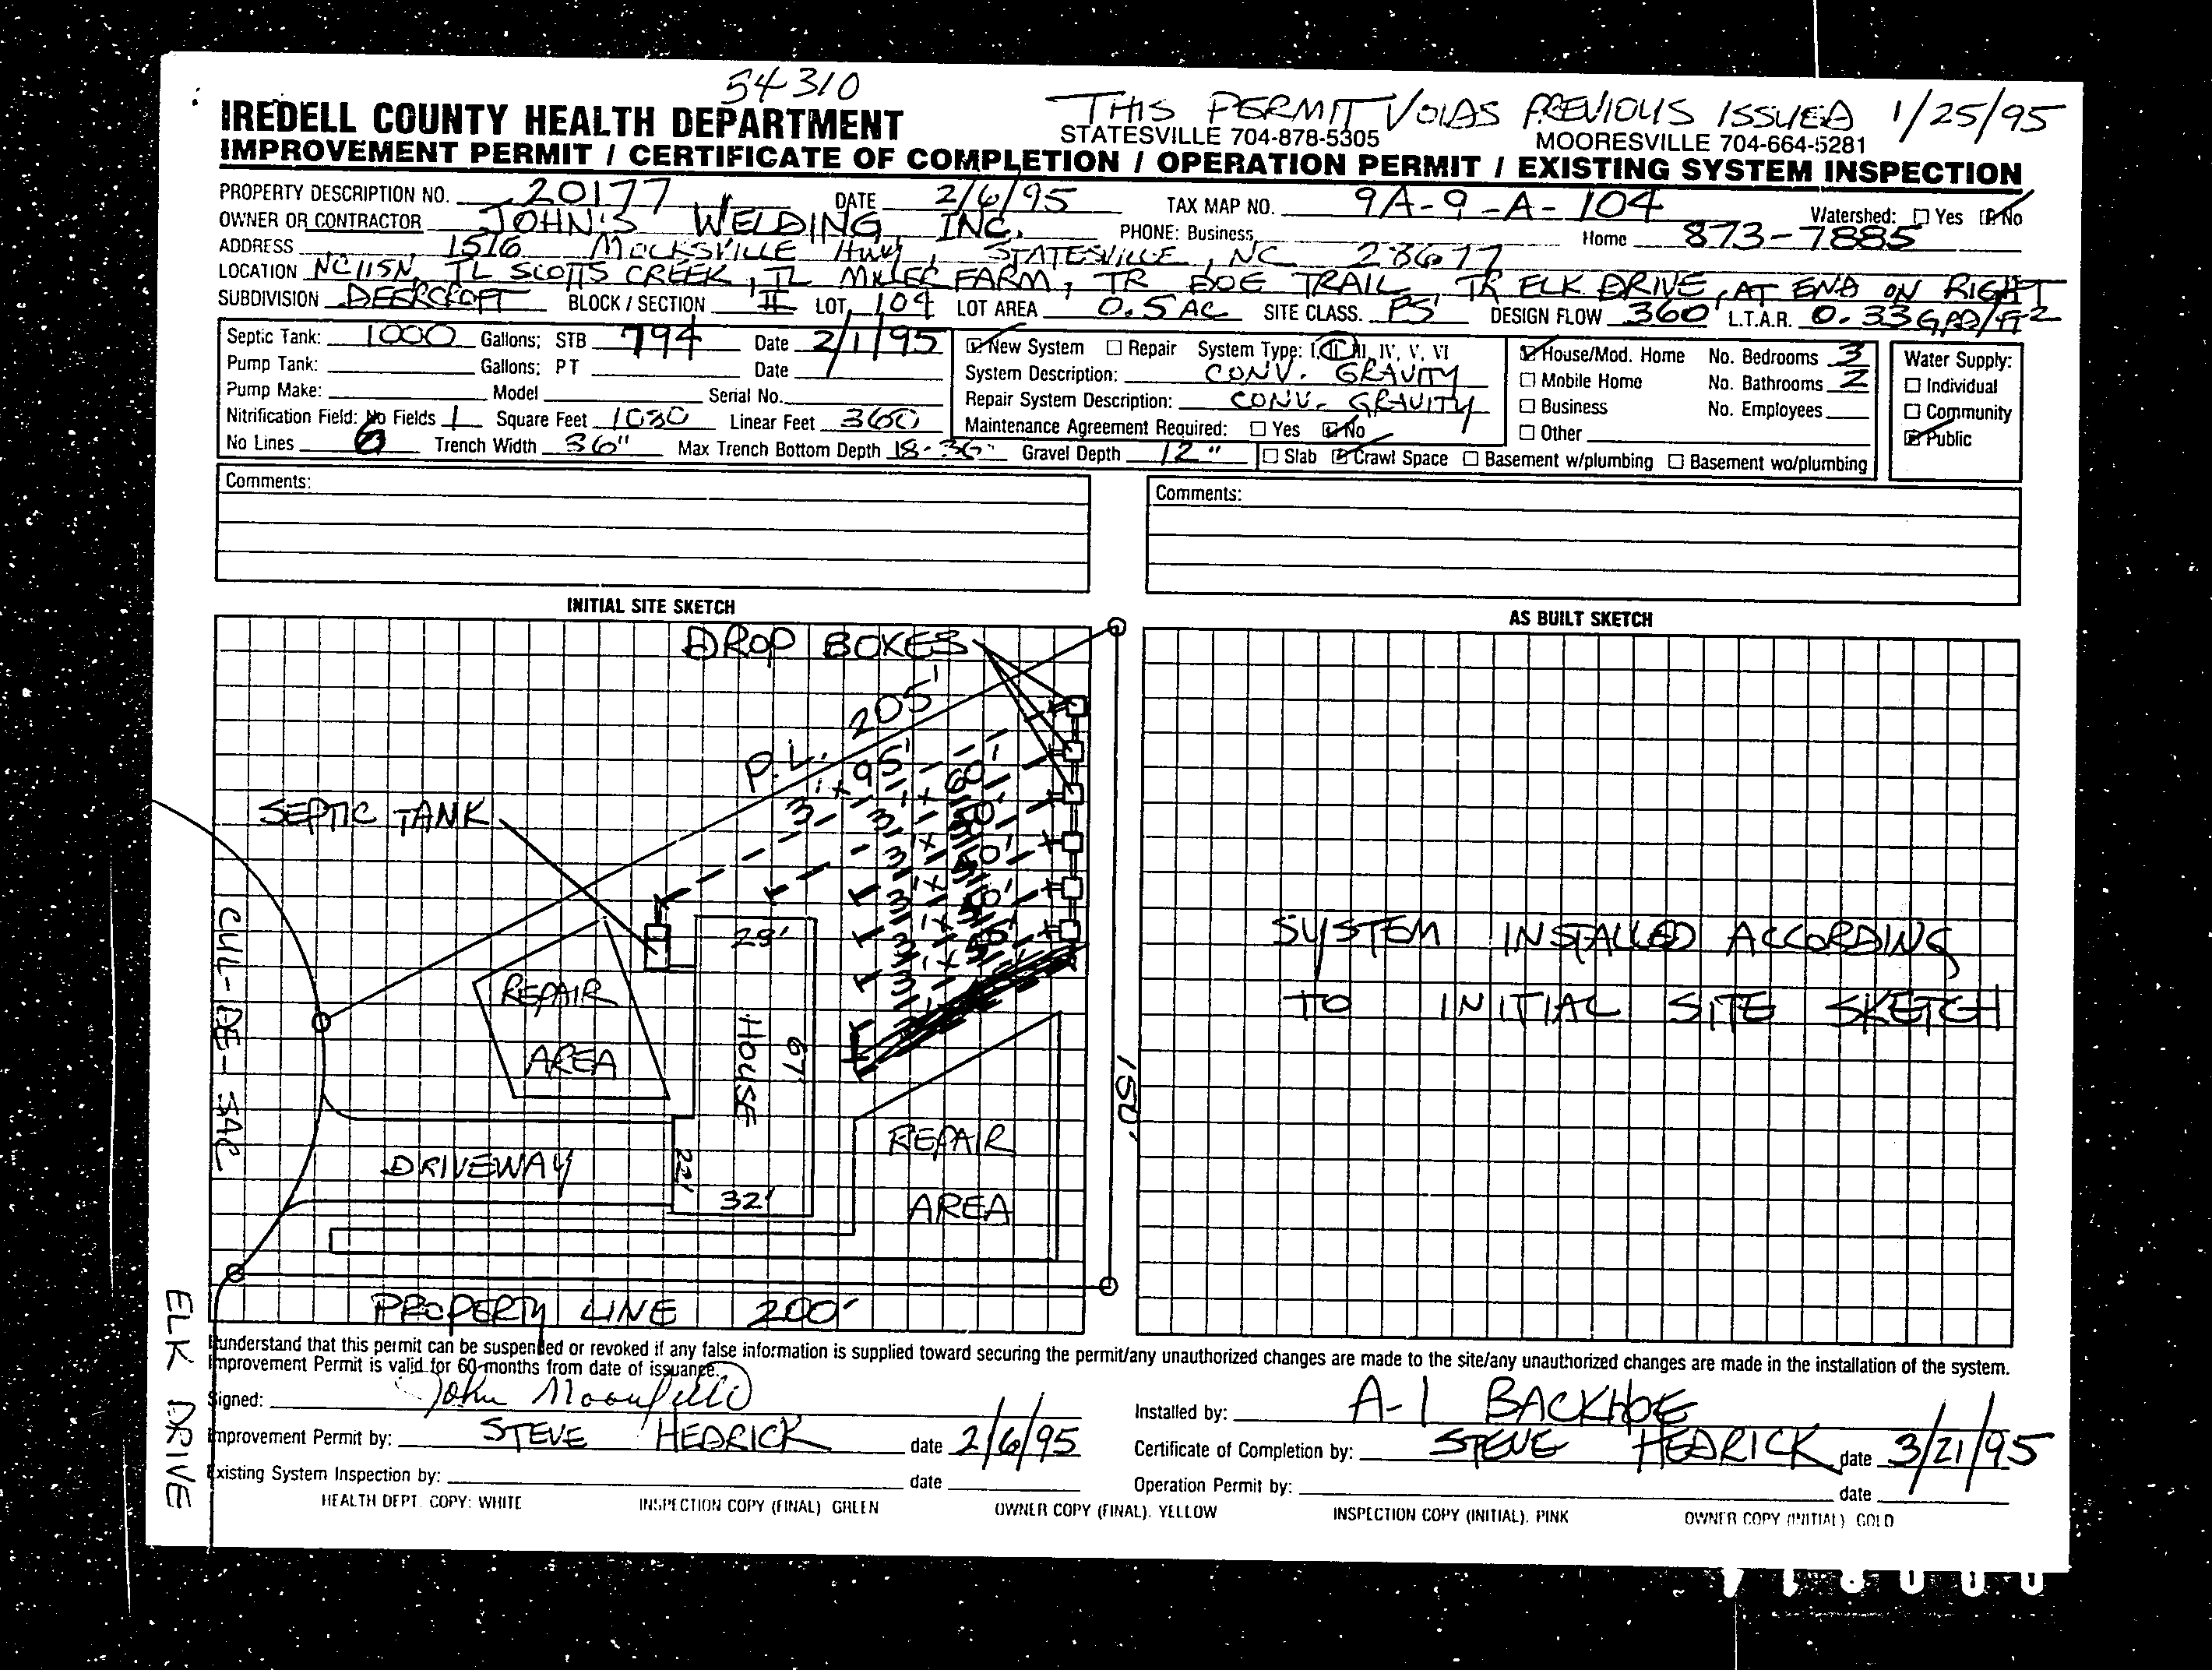 54310
THIS PERMIT VOIDS PREVIOUS ISSUED 1/25/95
IREDELL COUNTY HEALTH DEPARTMENT
STATESVILLE 704-878-5305 MOORESVILLE 704-664-5281
IMPROVEMENT PERMIT / CERTIFICATE OF COMPLETION / OPERATION PERMIT / EXISTING SYSTEM INSPECTION
PROPERTY DESCRIPTION NO. 20177 DATE 2/6/95 TAX MAP NO. 9A-9-A-104 Watershed: Yes No
OWNER OR CONTRACTOR JOHN'S WELDING, INC. PHONE: Business Home 873-7885
ADDRESS 1516 MOCKSVILLE Hwy, STATESVILLE, NC 28677
LOCATION NC 115N, TL SCOTTS CREEK, TL MILLER FARM, TR DOE TRAIL, TR ELK DRIVE, AT END ON RIGHT
SUBDIVISION DEERCROFT BLOCK / SECTION II LOT 104 LOT AREA 0.5 AC SITE CLASS. PS DESIGN FLOW 360 L.T.A.R. 0.33 GPD/FT2
Septic Tank: 1000 Gallons; STB 794 Date 2/1/95
Pump Tank: Gallons; PT Date
Pump Make: Model Serial No.
Nitrification Field: No Fields 1 Square Feet 1080 Linear Feet 360
No Lines 6 Trench Width 36" Max Trench Bottom Depth 18-36" Gravel Depth 12"
New System Repair System Type: I, II, III, IV, V, VI
System Description: CONV. GRAVITY
Repair System Description: CONV. GRAVITY
Maintenance Agreement Required: Yes No
House/Mod. Home No. Bedrooms 3
Mobile Home No. Bathrooms 2
Business No. Employees
Other
Slab Crawl Space Basement w/plumbing Basement wo/plumbing
Water Supply:
Individual
Community
Public
Comments:
Comments:
INITIAL SITE SKETCH
AS BUILT SKETCH
DROP BOXES
P.L. 205'
3' x 95'
60'
SEPTIC TANK
28'
REPAIR
AREA
HOUSE
67'
CUL-DE-SAC
150'
DRIVEWAY
22'
32'
REPAIR
AREA
PROPERTY LINE 200'
ELK DRIVE
SYSTEM INSTALLED ACCORDING
TO INITIAL SITE SKETCH
I understand that this permit can be suspended or revoked if any false information is supplied toward securing the permit/any unauthorized changes are made to the site/any unauthorized changes are made in the installation of the system.
Improvement Permit is valid for 60-months from date of issuance.
Signed: John
Improvement Permit by: STEVE HEDRICK date 2/6/95
Existing System Inspection by: date
Installed by: A-1 BACKHOE
Certificate of Completion by: STEVE HEDRICK date 3/21/95
Operation Permit by: date
HEALTH DEPT. COPY: WHITE INSPECTION COPY (FINAL) GREEN OWNER COPY (FINAL). YELLOW INSPECTION COPY (INITIAL). PINK OWNER COPY (INITIAL) GOLD